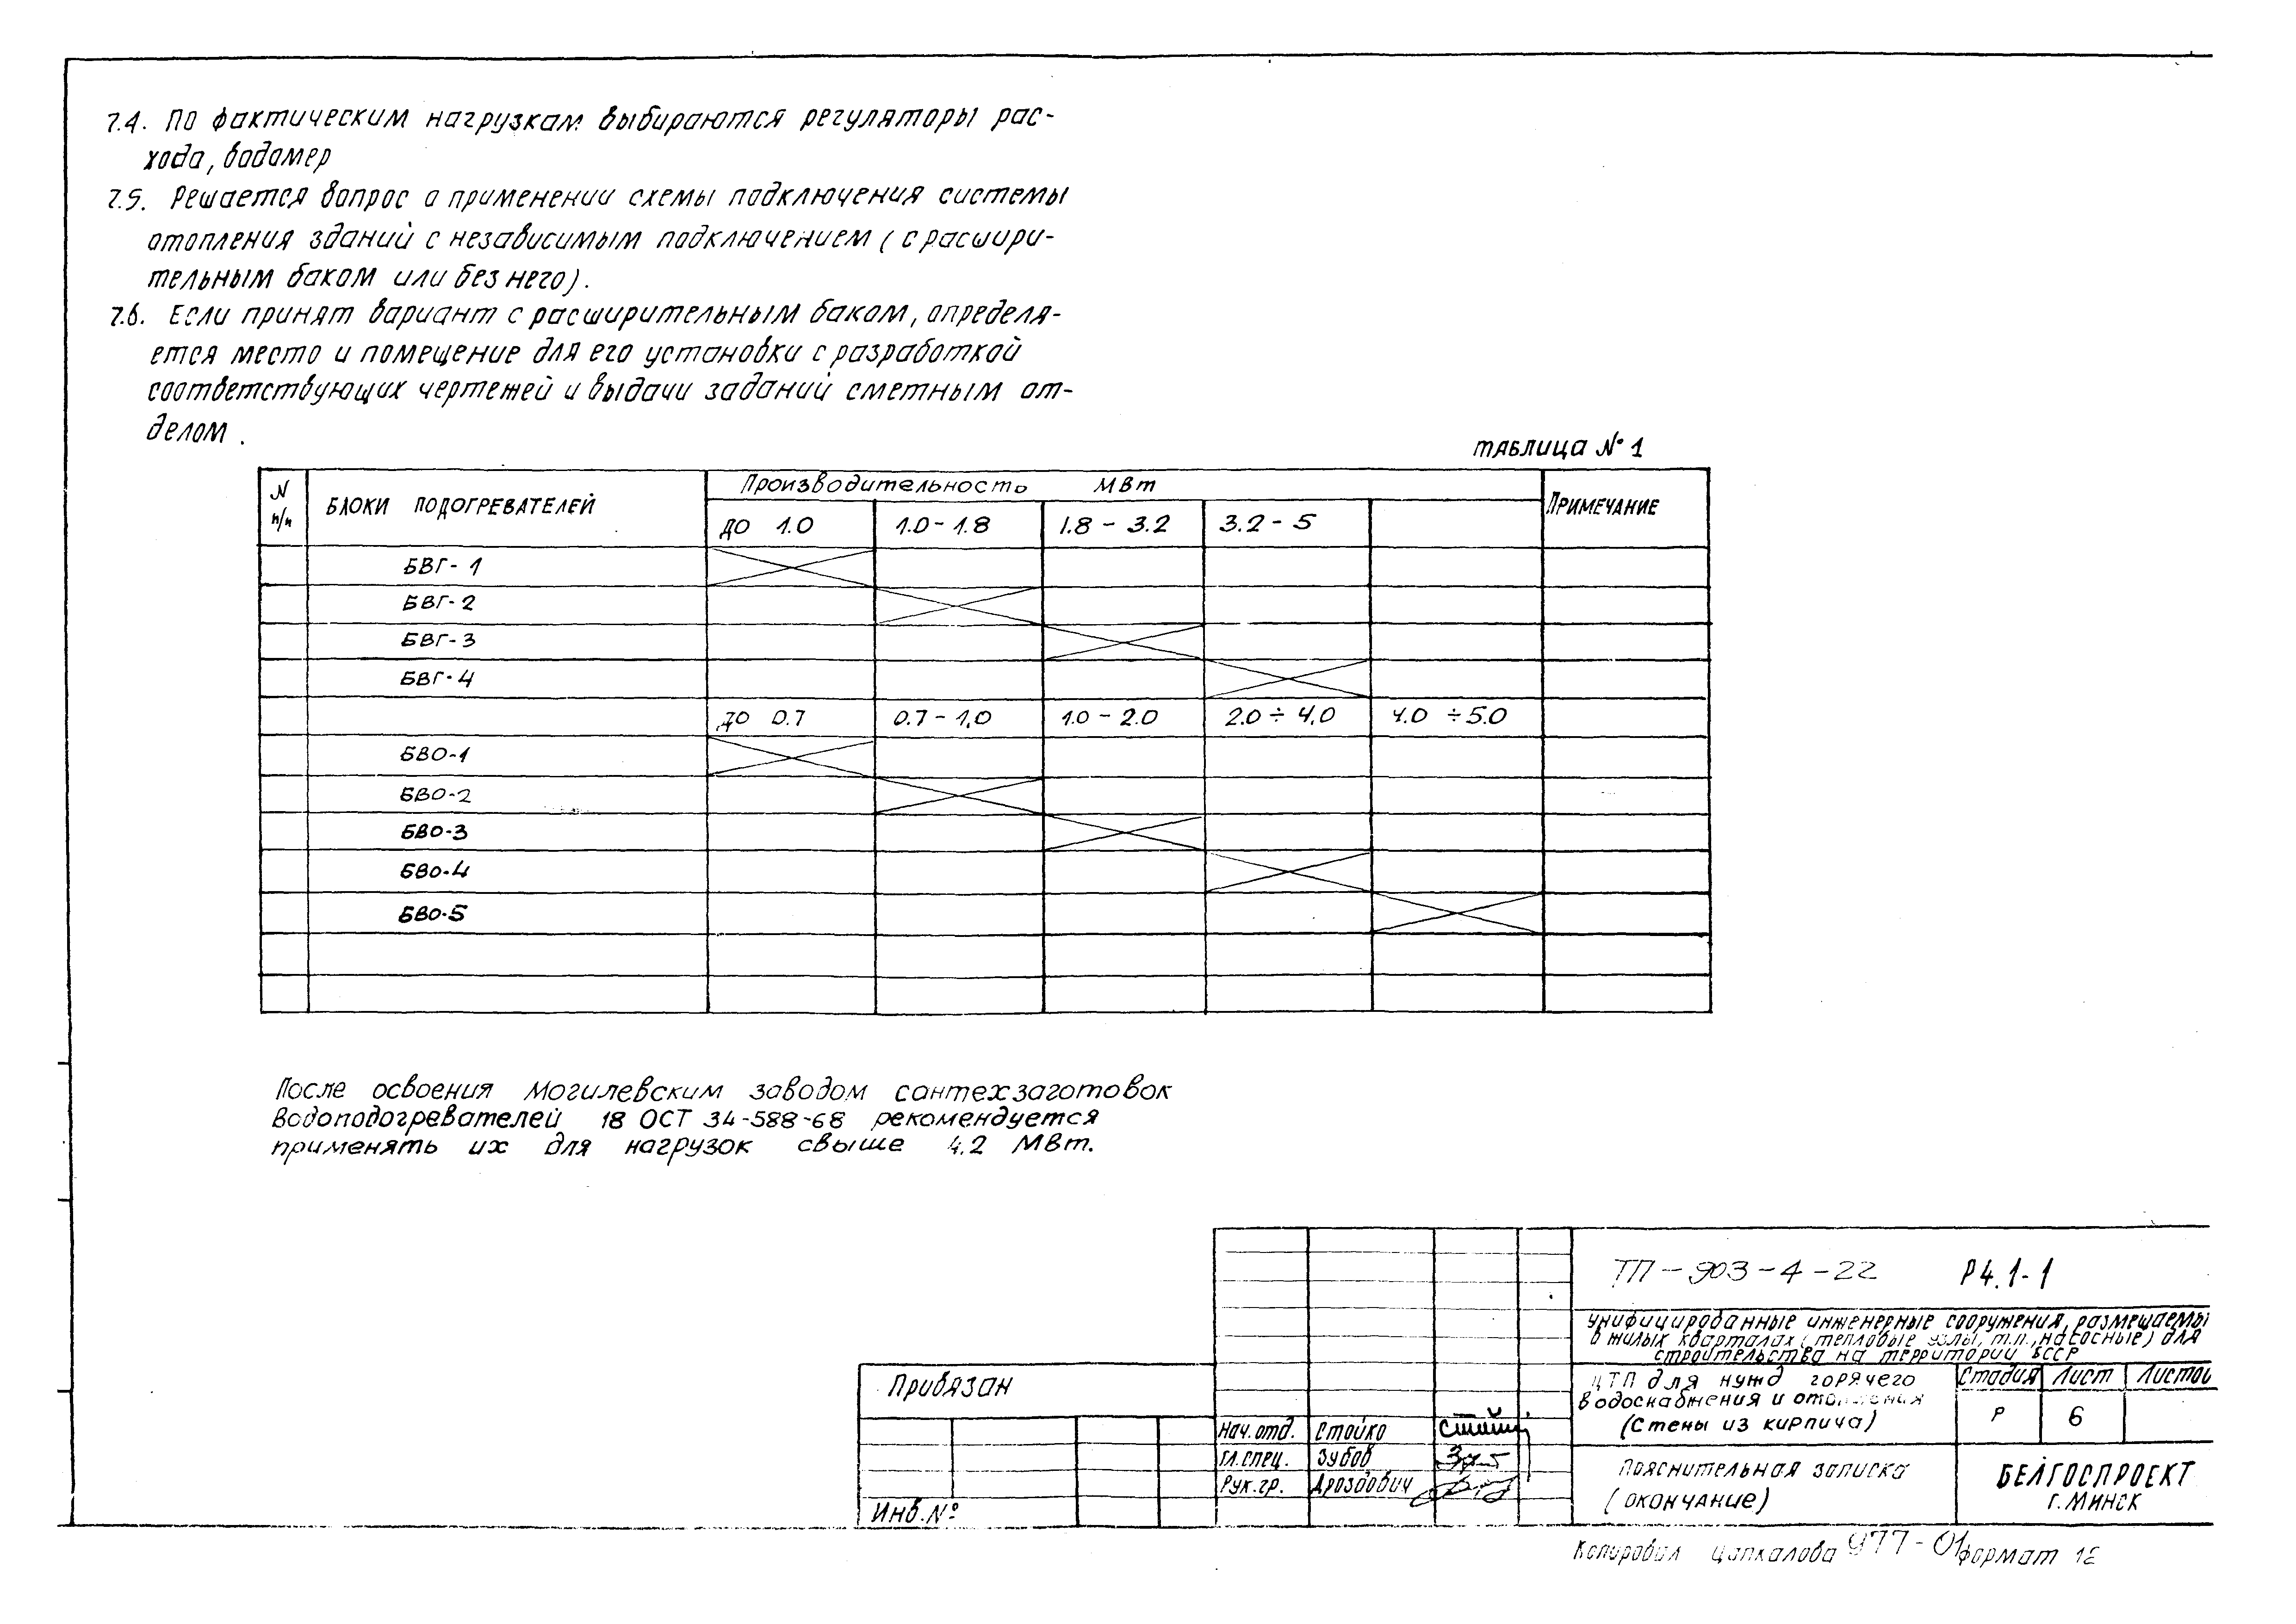 7.4. По фактическим нагрузкам выбираются регуляторы рас-
хода, водомер
7.5. Решается вопрос о применении схемы подключения системы
отопления зданий с независимым подключением (с расшири-
тельным баком или без него).
7.6. Если принят вариант с расширительным баком, определя-
ется место и помещение для его установки с разработкой
соответствующих чертежей и выдачи заданий сметным от-
делом.
Таблица № 1
N п/п БЛОКИ ПОДОГРЕВАТЕЛЕЙ Производительность МВт ПРИМЕЧАНИЕ
до 1.0 1.0-1.8 1.8-3.2 3.2-5
БВГ-1
БВГ-2
БВГ-3
БВГ-4
до 0.7 0.7-1,0 1.0-2.0 2.0÷4,0 4.0÷5.0
БВО-1
БВО-2
БВО-3
БВО-4
БВО-5
После освоения Могилевским заводом сантехзаготовок
водоподогревателей 18 ОСТ 34-588-68 рекомендуется
применять их для нагрузок свыше 4.2 МВт.
ТП-903-4-22 Р4.1-1
Унифицированные инженерные сооружения, размещаемы
в жилых кварталах (тепловые узлы, т.п., насосные) для
строительства на территории БССР
Привязан
ЦТП для нужд горячего
водоснабжения и отопления
(Стены из кирпича)
Стадия Лист Листов
Р 6
Нач.отд. Стойко
Гл.спец. Зубов
Рук.гр. Дроздович
Инв.№
Пояснительная записка
(окончание)
БЕЛГОСПРОЕКТ
г. МИНСК
Копировал Цапкалова 977-01 Формат 12